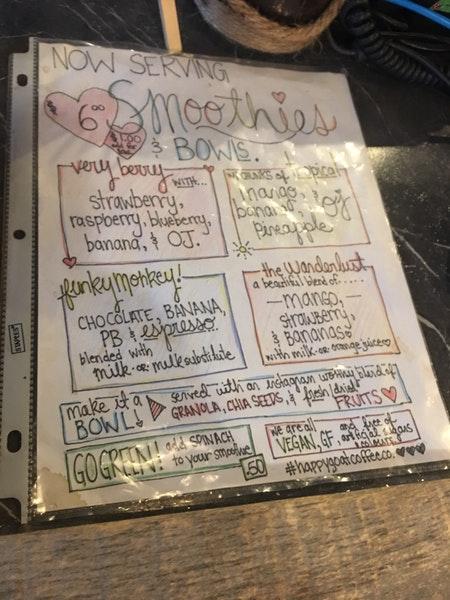 NOW SERVING
$6.00
Smoothies
$1.00
& BOWLS.
very berry
WITH...
strawberry,
raspberry, blueberry,
banana, & OJ.
Tropical
mango,
banana, & OJ
Pineapple
funky monkey!
CHOCOLATE, BANANA,
PB & espresso
blended with
milk -or- mylk substitute
the Wanderlust
a beautiful blend of.....
-mango,-
strawberry,
& bananas
with milk -or- orange juice
make it a
BOWL!
served with an instagram worthy blend of
GRANOLA, CHIA SEEDS, & fresh/dried
FRUITS
GO GREEN! add SPINACH
to your smoothie
.50
we are all
VEGAN, GF, and free of
artificial
colours.
#happygoatcoffeeco.
STAPLES